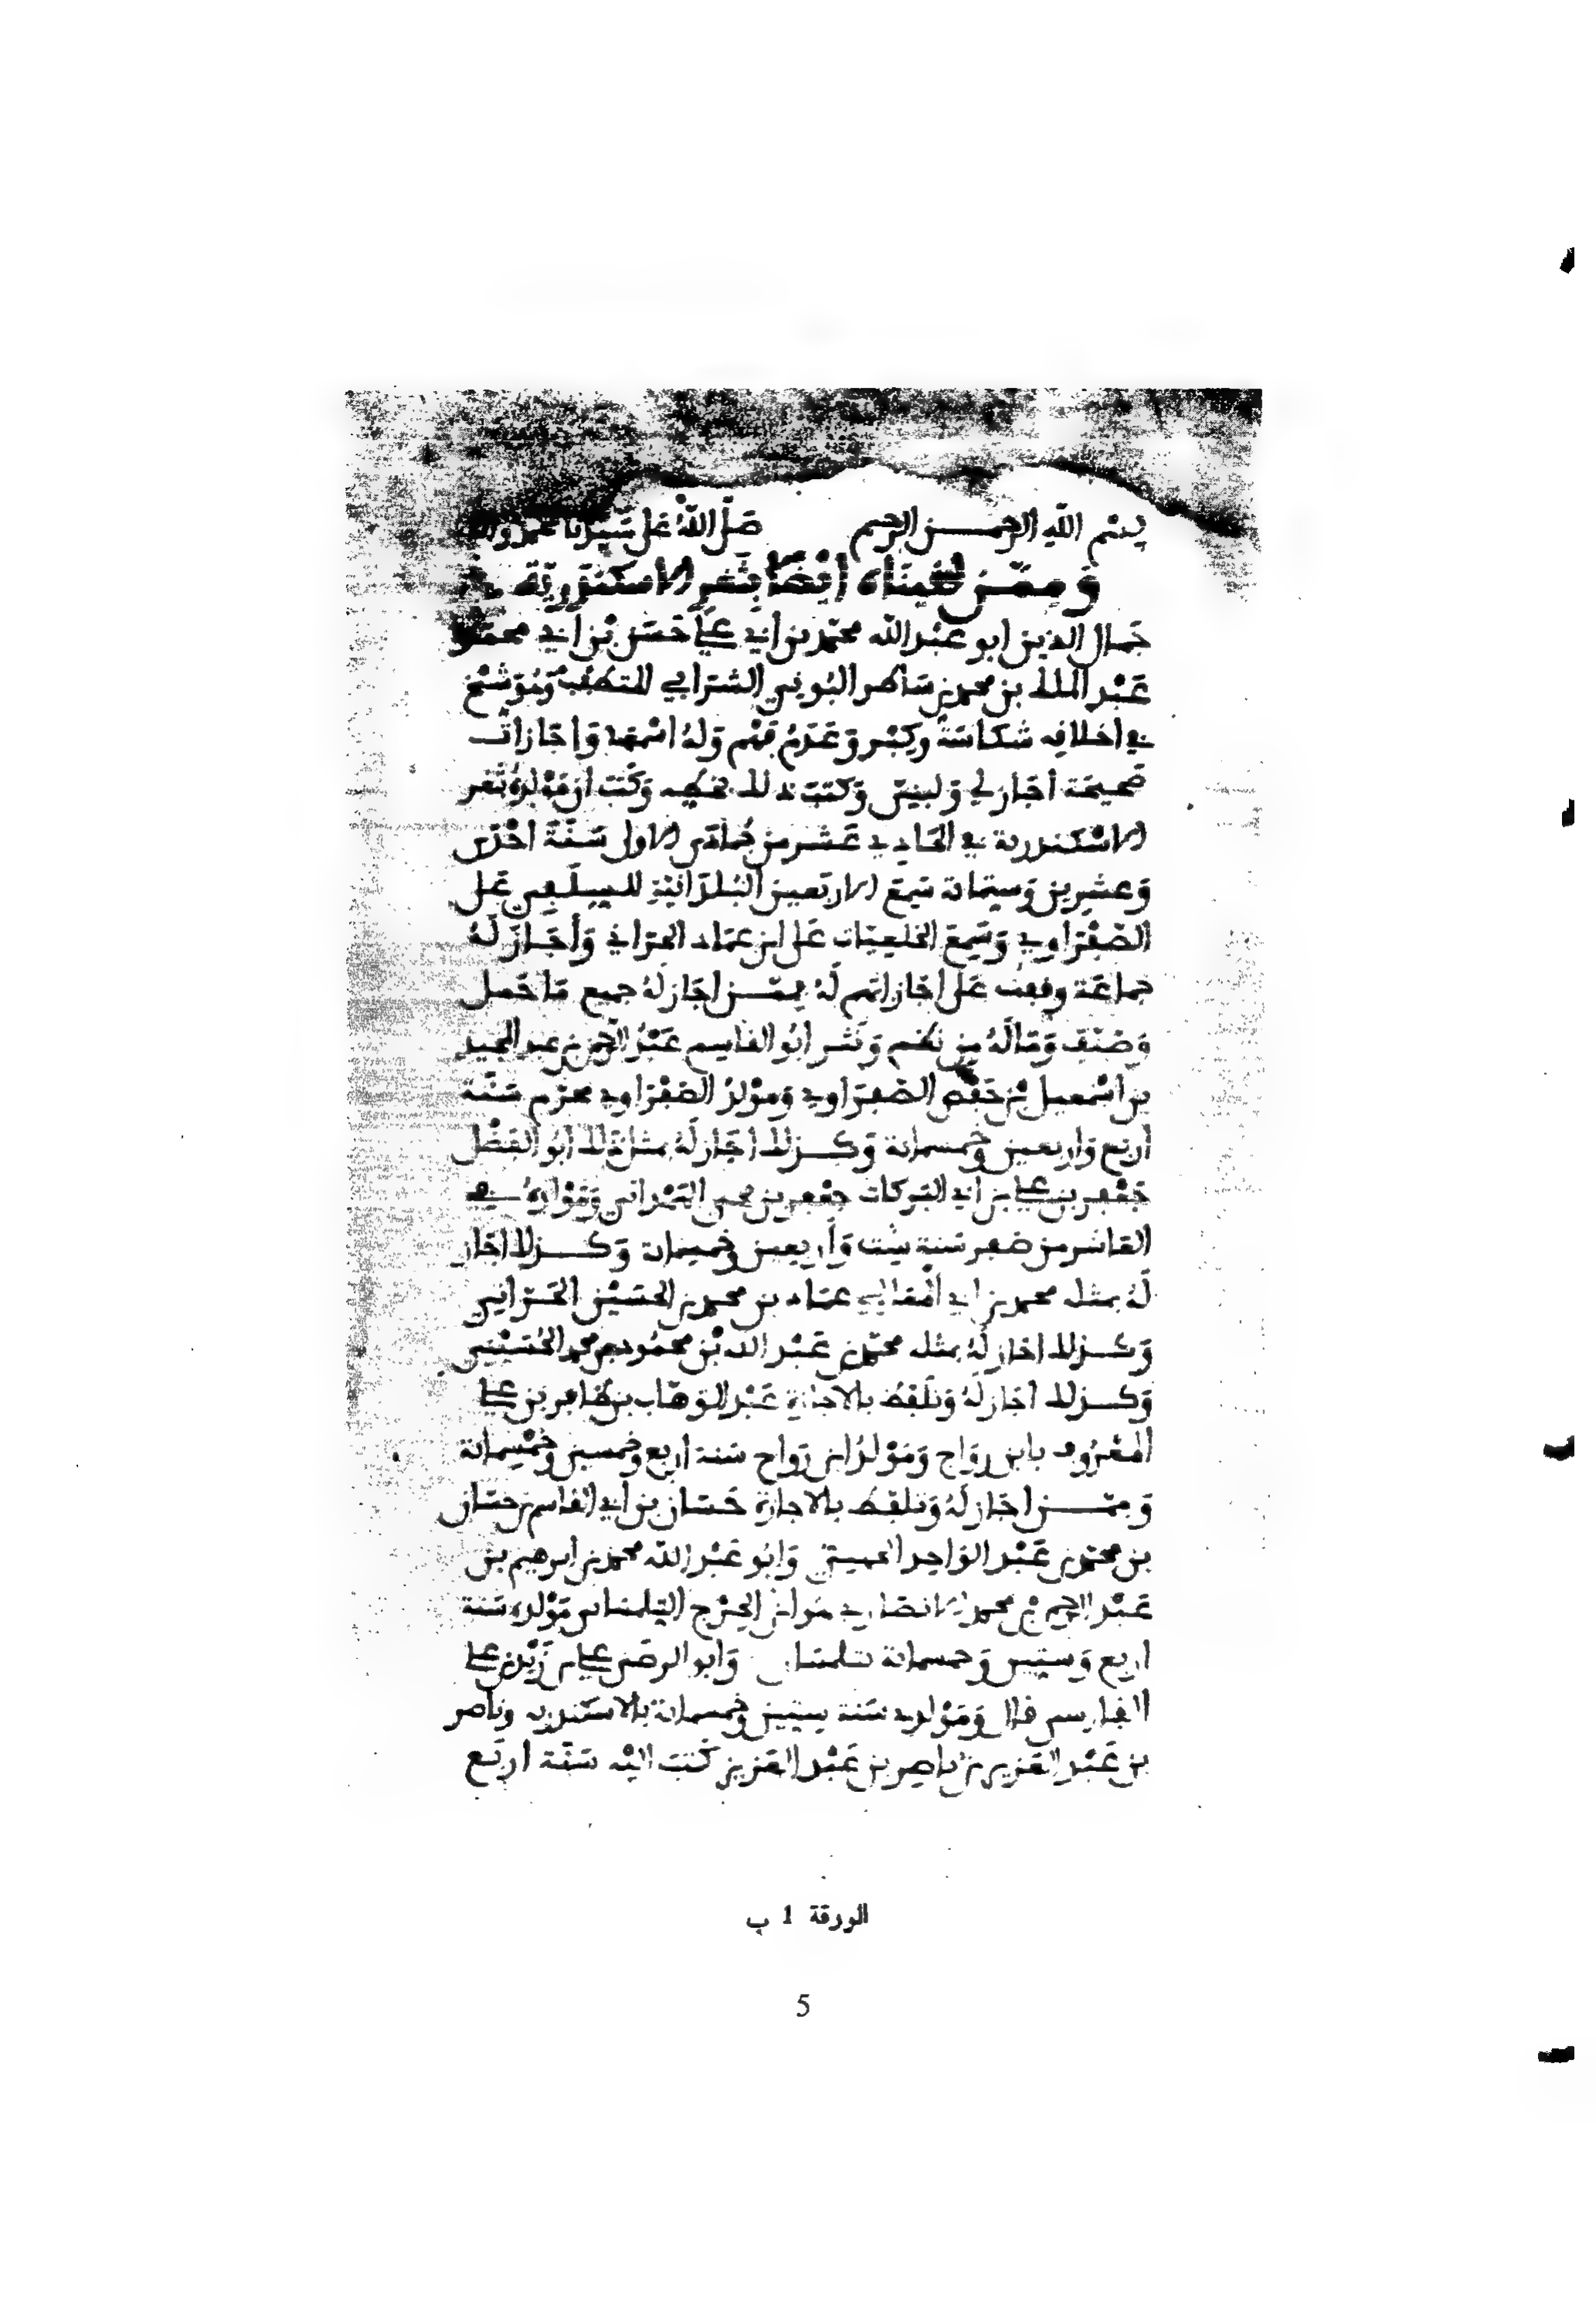 بسم الله الرحمن الرحيم صلى الله على سيدنا محمد وآله
وممن لقيناه أيضا بثغر الاسكندرية
جمال الدين ابو عبد الله محمد بن ابي علي حسن بن ابي محمد
عبد الملك بن محمد بن شاكر البوني الشرابي المتطبب وهو شيخ
في اخلاقه شكاسة وكبر وعدم فهم وله اسمعة واجازات
صحيحة اجاز لي ولبني وكتب ذلك بخطه وكتب ان مولده بثغر
الاسكندرية في الحادي عشر من جمادى الاولى سنة احدى
وعشرين وستمائة سمع الاربعين البلدانية للسلفي على
الصفراوي وسمع الخلعيات على ابن عماد الحراني وأجاز له
جماعة وقفت على اجازاتهم له فممن اجاز له جميع ما حمل
وصنف وماله من نظم ونثر ابو القاسم عبد الرحمن بن عبد المجيد
بن اسمعيل بن حفص الصفراوي ومولد الصفراوي محرم سنة
أربع واربعين وخمسمائة وكذلك اجاز له بمثل ذلك ابو الفضل
جعفر بن علي بن ابي البركات جعفر بن يحيى الهمداني ومولده في
العاشر من صفر سنة ست وأربعين وخمسمائة وكذلك اجاز
له بمثله محمد بن ابي المعالي عماد بن محمد بن الحسين الحراني
وكذلك اجاز له بمثله محمد بن عبد الله بن محمود بن محمد الحسيني
وكذلك اجاز له وتلفظ بالاجازة عبد الوهاب بن ظافر بن علي
المعروف بابن رواج ومولد ابن رواج سنة اربع وخمسين وخمسمائة
وممن اجاز له وتلفظ بالاجازة حسان بن ابي القاسم بن حسان
بن محمد بن عبد الواحد وابو عبد الله محمد بن ابرهيم بن
عبد الرحمن بن محمد الانصاري هو ابن الجرج التلمساني مولده سنة
اربع وستين وخمسمائة بتلمسان وابو الرضى علي بن زيد بن علي
الفارسي قال ومولدي سنة ستين وخمسمائة بالاسكندرية وناصر
بن عبد العزيز بن ناصر بن عبد العزيز كتب اليه سنة اربع
الورقة 1 ب
5